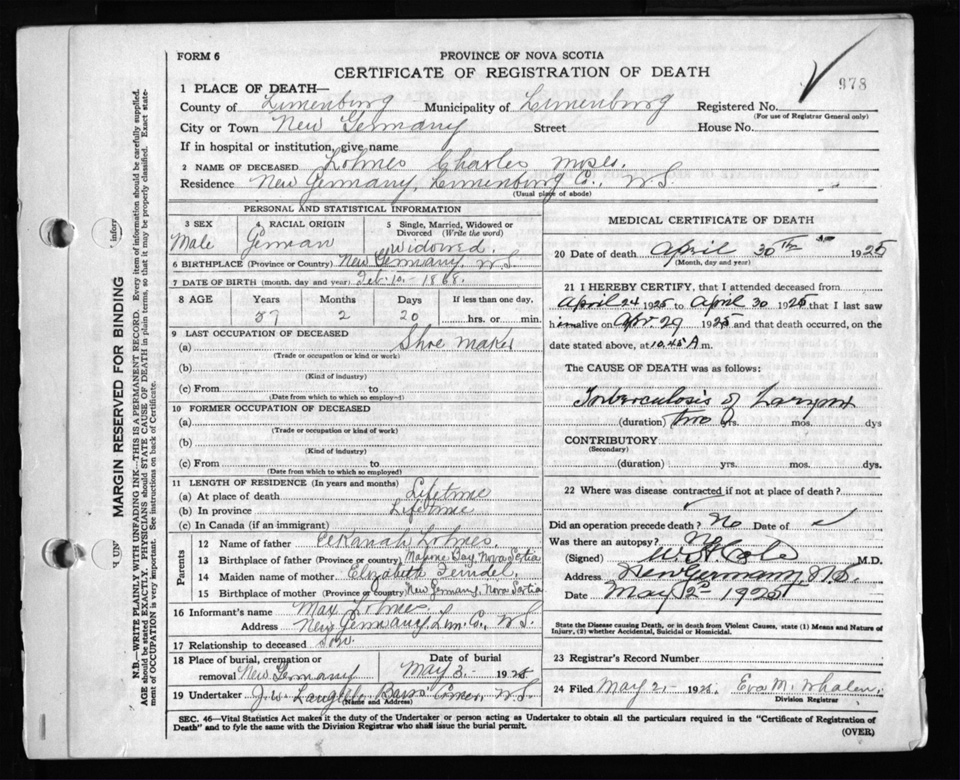 FORM 6
PROVINCE OF NOVA SCOTIA
CERTIFICATE OF REGISTRATION OF DEATH
978
1 PLACE OF DEATH—
County of Lunenburg Municipality of Lunenburg Registered No.
(For use of Registrar General only)
City or Town New Germany Street House No.
If in hospital or institution, give name
2 NAME OF DECEASED Lohnes Charles Moses.
Residence New Germany, Lunenburg Co., N.S.
(Usual place of abode)
PERSONAL AND STATISTICAL INFORMATION
3 SEX 4 RACIAL ORIGIN 5 Single, Married, Widowed or Divorced (Write the word)
Male German Widowed.
6 BIRTHPLACE (Province or Country) New Germany, N.S.
7 DATE OF BIRTH (month, day and year) Feb. 10.- 1868.
8 AGE Years Months Days If less than one day,
57 2 20 hrs. or min.
9 LAST OCCUPATION OF DECEASED
(a) Shoe maker
(Trade or occupation or kind or work)
(b)
(Kind of industry)
(c) From to
(Date from which to which so employed)
10 FORMER OCCUPATION OF DECEASED
(a)
(Trade or occupation or kind of work)
(b)
(Kind of industry)
(c) From to
(Date from which to which so employed)
11 LENGTH OF RESIDENCE (In years and months)
(a) At place of death Lifetime
(b) In province Lifetime
(c) In Canada (if an immigrant)
Parents
12 Name of father Elkanah Lohnes
13 Birthplace of father (Province or country) Mahone Bay, Nova Scotia
14 Maiden name of mother Elizabeth
15 Birthplace of mother (Province or country) New Germany, Nova Scotia
16 Informant's name Max Lohnes
Address New Germany, Lun. Co., N.S.
17 Relationship to deceased Son.
18 Place of burial, cremation or removal New Germany Date of burial May 3.- 1925
19 Undertaker J.W. Barss Corner, N.S.
(Name and Address)
MEDICAL CERTIFICATE OF DEATH
20 Date of death April 30th 1925
(Month, day and year)
21 I HEREBY CERTIFY, that I attended deceased from
April 24 1925 to April 30 1925 that I last saw
him alive on Apr. 29 1925 and that death occurred, on the
date stated above, at 10.45 A m.
The CAUSE OF DEATH was as follows:
Tuberculosis of Larynx
(duration) two yrs. mos. dys
CONTRIBUTORY
(Secondary)
(duration) yrs. mos. dys.
22 Where was disease contracted if not at place of death?
Did an operation precede death? No Date of
Was there an autopsy? No
(Signed) W.H. Cole M.D.
Address New Germany N.S.
Date May 2nd 1925
State the Disease causing Death, or in death from Violent Causes, state (1) Means and Nature of
Injury, (2) whether Accidental, Suicidal or Homicidal.
23 Registrar's Record Number
24 Filed May 2.- 1925. Eva M. Whalen.
Division Registrar
SEC. 46—Vital Statistics Act makes it the duty of the Undertaker or person acting as Undertaker to obtain all the particulars required in the "Certificate of Registration of
Death" and to fyle the same with the Division Registrar who shall issue the burial permit.
(OVER)
MARGIN RESERVED FOR BINDING
N.B.—WRITE PLAINLY WITH UNFADING INK—THIS IS A PERMANENT RECORD. Every item of information should be carefully supplied.
AGE should be stated EXACTLY. PHYSICIANS should STATE CAUSE OF DEATH in plain terms, so that it may be properly classified. Exact state-
ment of OCCUPATION is very important. See instructions on back of Certificate.